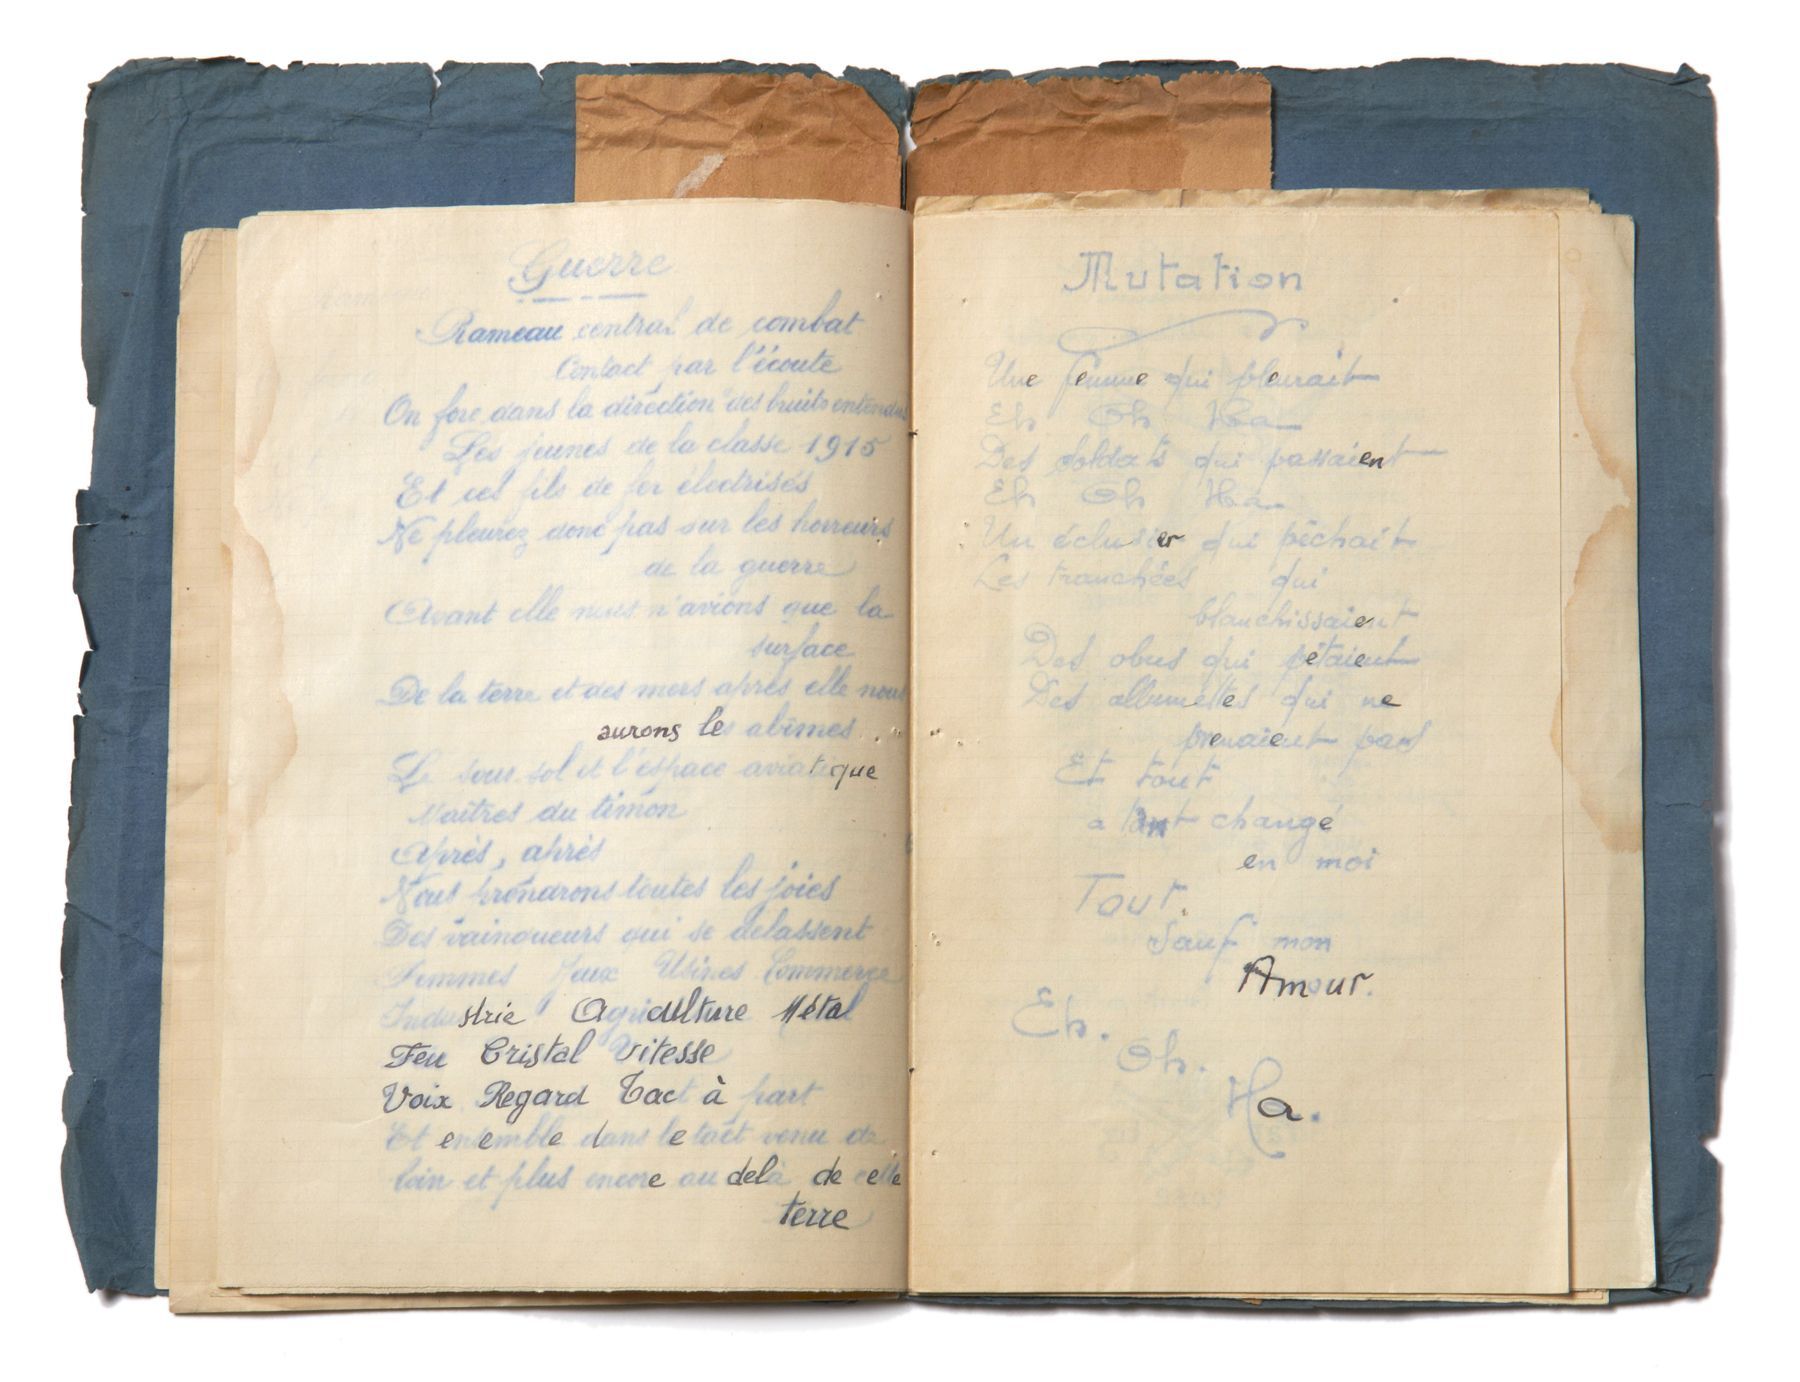 Guerre
Rameau central de combat
Contact par l'écoute
On fore dans la direction "des bruits entendus
Les jeunes de la classe 1915
Et cet fils de fer électrisés
Ne pleurez donc pas sur les horreurs
de la guerre
Avant elle nous n'avions que la
surface
De la terre et des mers après elle nous
aurons les abîmes
Le sous-sol et l'espace aviatique
Maîtres du timon
Après, après
Nous prendrons toutes les joies
Des vainqueurs qui se delassent
Femmes Jeux Usines Commerce
Industrie Agriculture Métal
Feu Cristal Vitesse
Voix Regard Tact à part
Et ensemble dans le tact venu de
loin et plus encore au delà de cette
terre
Mutation
Une femme qui pleurait
Eh Oh Ha
Des soldats qui passaient
Eh Oh Ha
Un éclusier qui pêchait
Les tranchées qui
blanchissaient
Des obus qui pétaient
Des allumettes qui ne
prenaient pas
Et tout
a tant changé
en moi
Tout.
Sauf mon
Amour.
Eh.
Oh.
Ha.